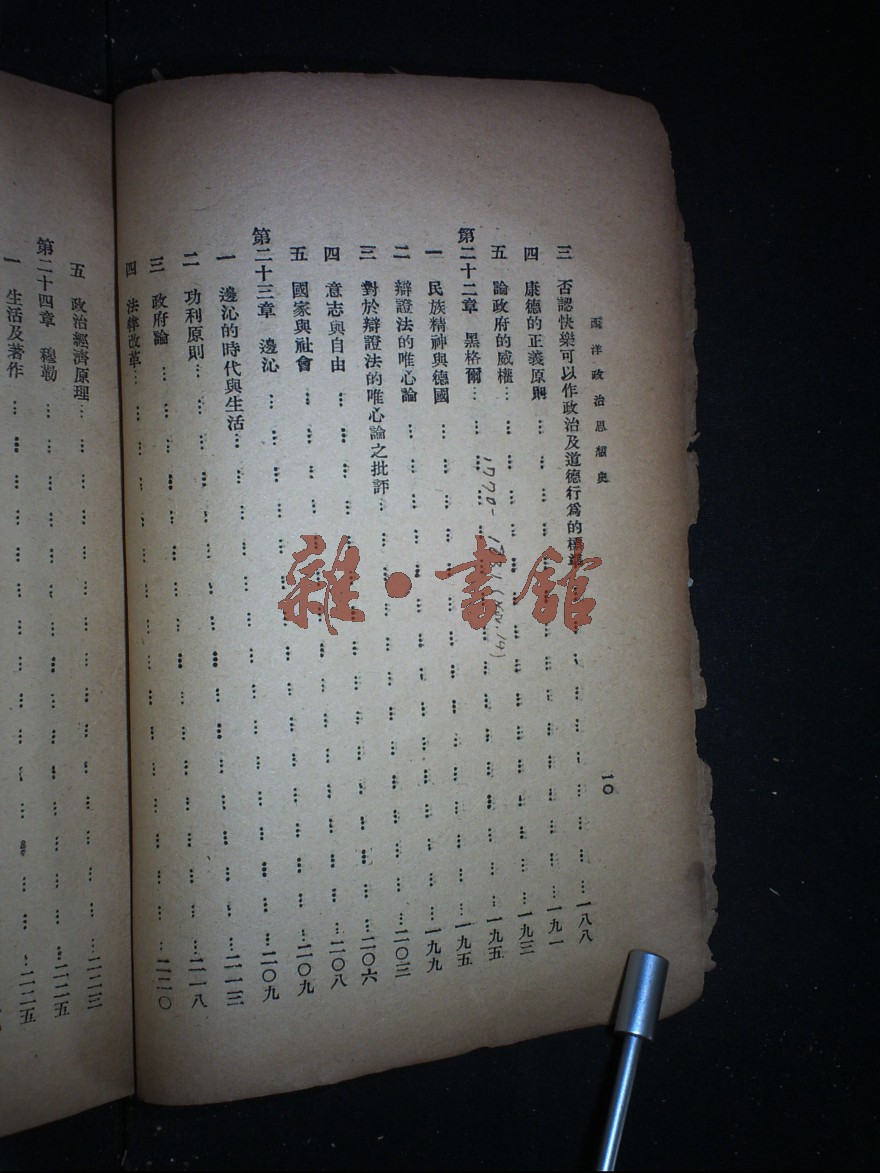 西洋政治思想史 一〇
三 否認快樂可以作政治及道德行爲的標準……一八八
四 康德的正義原則……一九一
五 論政府的威權……一九三
第二十二章 黑格爾……一九五
1770-1831 (Nov.14)
一 民族精神與德國……一九五
二 辯證法的唯心論……一九九
三 對於辯證法的唯心論之批評……二〇三
四 意志與自由……二〇六
五 國家與社會……二〇八
第二十三章 邊沁……二〇九
一 邊沁的時代與生活……二〇九
二 功利原則……二一三
三 政府論……二一八
四 法律改革……二二〇
五 政治經濟原理……二二三
第二十四章 穆勒……二二五
一 生活及著作……二二五
雜·書館